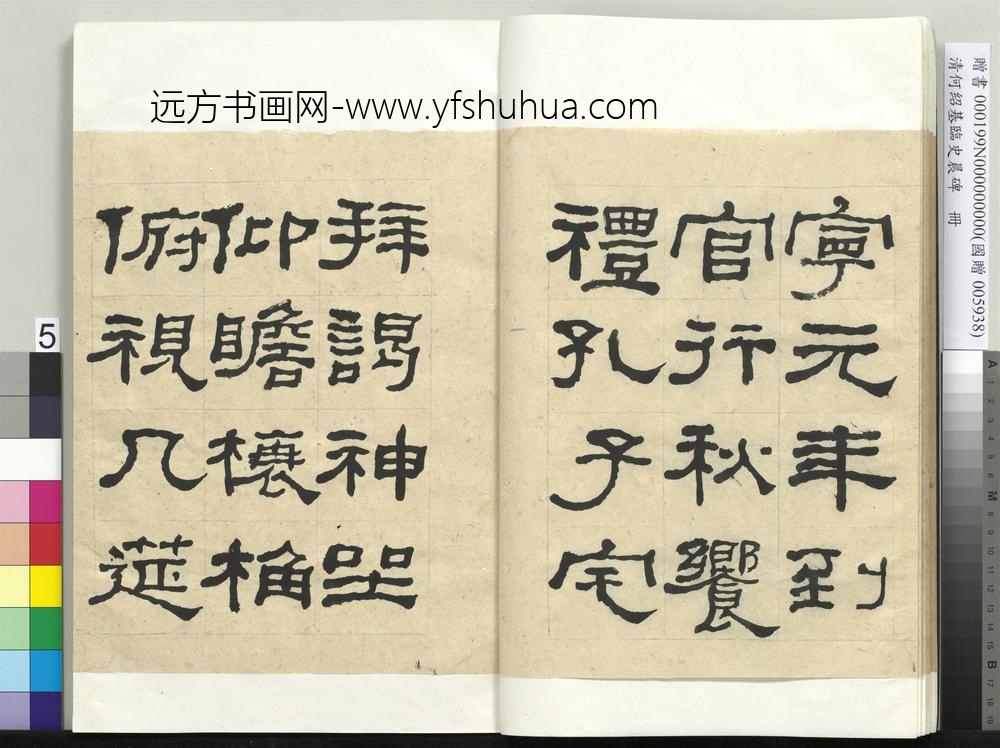 远方书画网-www.yfshuhua.com
寧元年到
官行秋饗
禮孔子宅
拜謁神坐
仰瞻榱桷
俯視几筵
贈書 000199N000000000(國贈 005938)
清何紹基臨史晨碑 冊
5
A 1 2 3 4 5 6 M 8 9 10 11 12 13 14 15 B 17 18 19